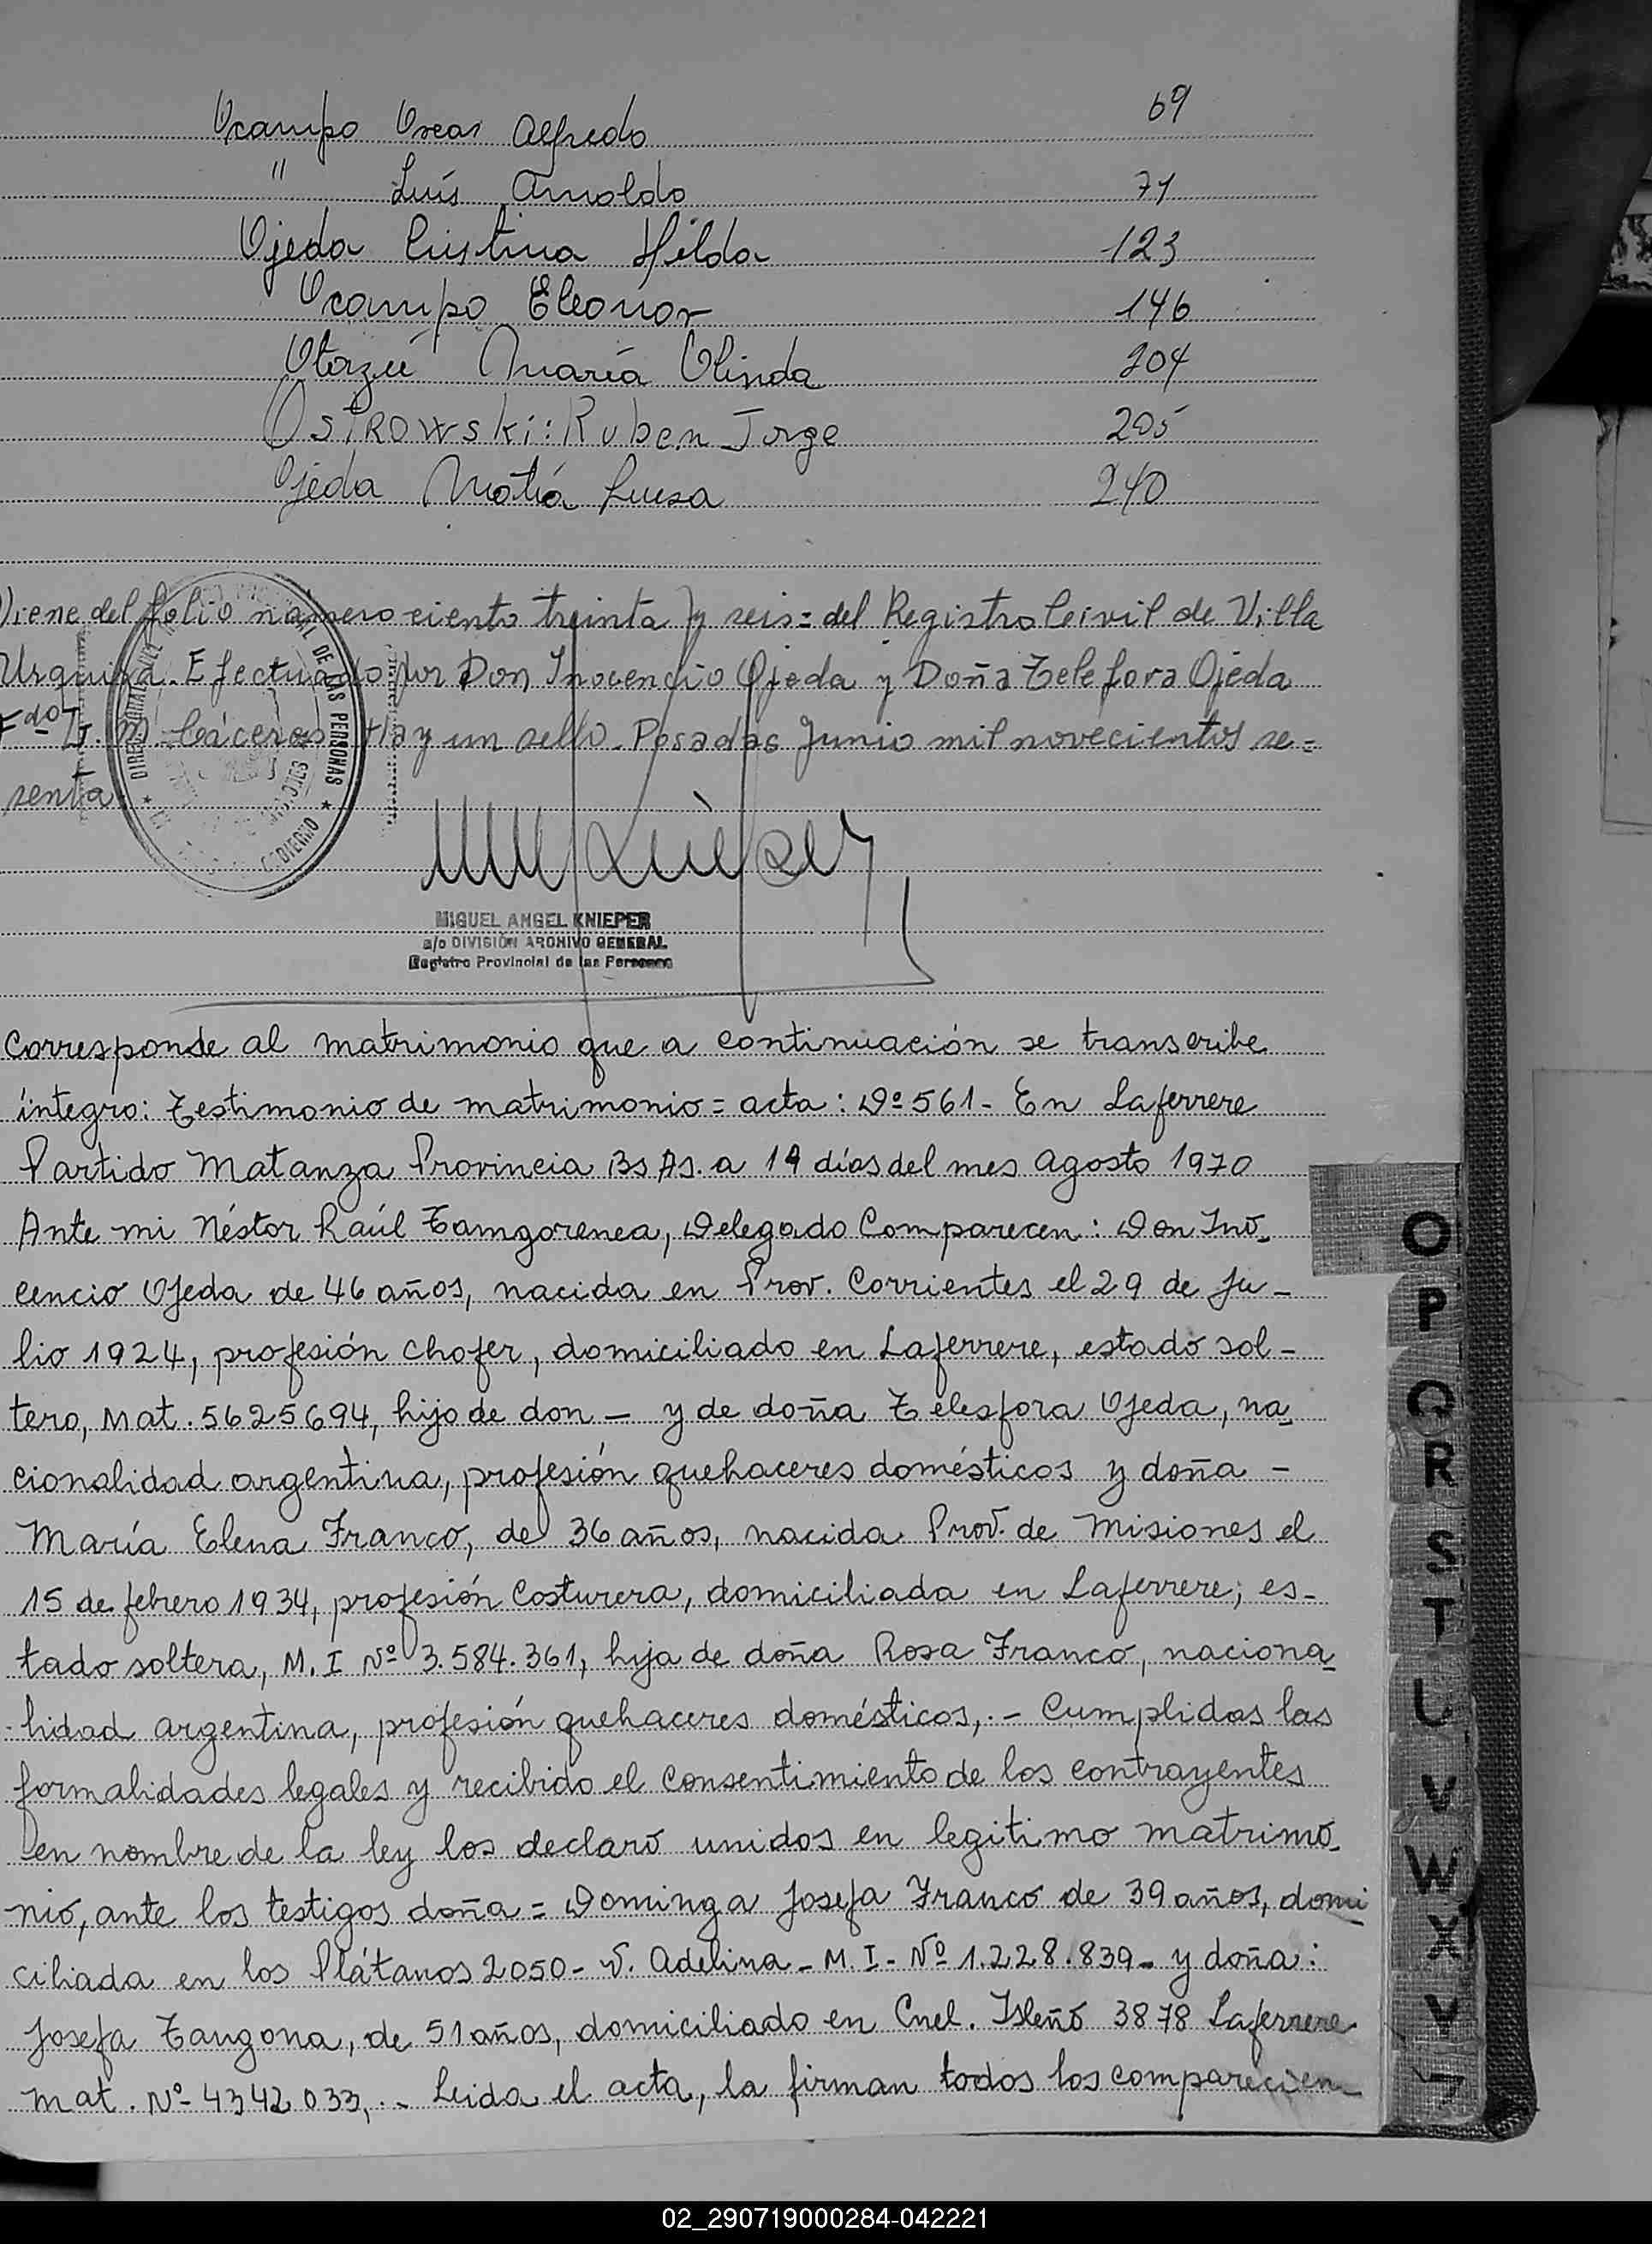 Ocampo Oscar Alfredo 69
" Luís Arnoldo 71
Ojeda Cristina Hilda 123
Ocampo Eleonor 146
Otazú María Olinda 204
OSTROWSKi: Ruben Jorge 205
Ojeda María Luisa 240
Viene del folio número ciento treinta y seis = del Registro Civil de Villa
Urquiza. Efectuado por Don Inocencio Ojeda y Doña Telefora Ojeda
Fdo M. Cáceres Hay un sello. Posadas Junio mil novecientos se=
senta.
DE LAS PERSONAS
GOBIERNO
MIGUEL ANGEL KNIEPER
a/c DIVISIÓN ARCHIVO GENERAL
Registro Provincial de las Personas
Corresponde al matrimonio que a continuación se transcribe
íntegro: Testimonio de matrimonio = acta: Nº 561 - En Laferrere
Partido Matanza Provincia Bs As. a 14 días del mes agosto 1970
Ante mi Néstor Raúl Tamgorenea, Delegado Comparecen: Don Ino-
cencio Ojeda de 46 años, nacida en Prov. Corrientes el 29 de Ju-
lio 1924, profesión chofer, domiciliado en Laferrere, estado sol-
tero, Mat. 5625694, hijo de don - y de doña Telesfora Ojeda, na-
cionalidad argentina, profesión quehaceres domésticos y doña -
María Elena Franco, de 36 años, nacida Prov. de Misiones el
15 de febrero 1934, profesión Costurera, domiciliada en Laferrere; es-
tado soltera, M. I Nº 3.584.361, hija de doña Rosa Franco, naciona-
lidad argentina, profesión quehaceres domésticos,.- Cumplidas las
formalidades legales y recibido el consentimiento de los contrayentes
en nombre de la ley los declaró unidos en legitimo matrimo-
nio, ante los testigos doña = Dominga Josefa Franco de 39 años, domi-
ciliada en los Plátanos 2050 - V. Adelina - M. I - Nº 1.228.839 - y doña:
Josefa Tangona, de 51 años, domiciliado en Cnel. Isleño 3878 Laferrere
Mat. Nº 4342033,.- Leida el acta, la firman todos los comparecien-
O
P
Q
R
S
T
U
V
W
X
Y
02_290719000284-042221